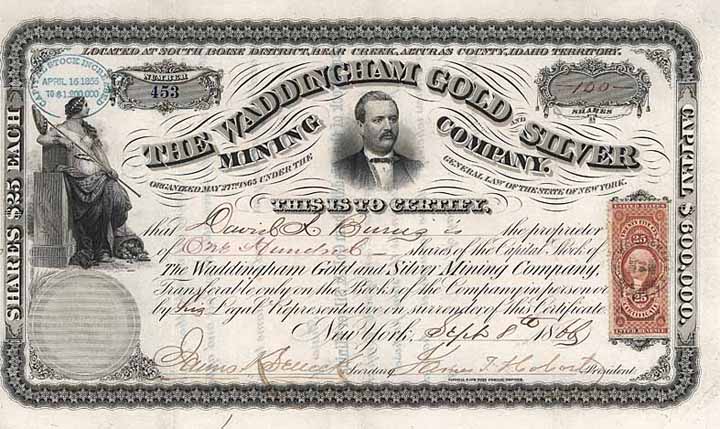 LOCATED AT SOUTH BOISE DISTRICT, BEAR CREEK, ALTURAS COUNTY, IDAHO TERRITORY.
CAPITAL STOCK INCREASED
APRIL 16 1866
TO $1,200,000
NUMBER
453
100
SHARES
THE WADDINGHAM GOLD AND SILVER
MINING COMPANY.
ORGANIZED MAY 27TH 1865 UNDER THE GENERAL LAW OF THE STATE OF NEW YORK.
SHARES $25 EACH
CAPITAL $600,000.
THIS IS TO CERTIFY,
that David is the proprietor
of One Hundred shares of the Capital Stock of
The Waddingham Gold and Silver Mining Company,
Transferable only on the Books of the Company in person or
by his Legal Representative on surrender of this Certificate.
New York, Sept 8th 1866
James President.
UNITED STATES
25
25
INTER. REVENUE